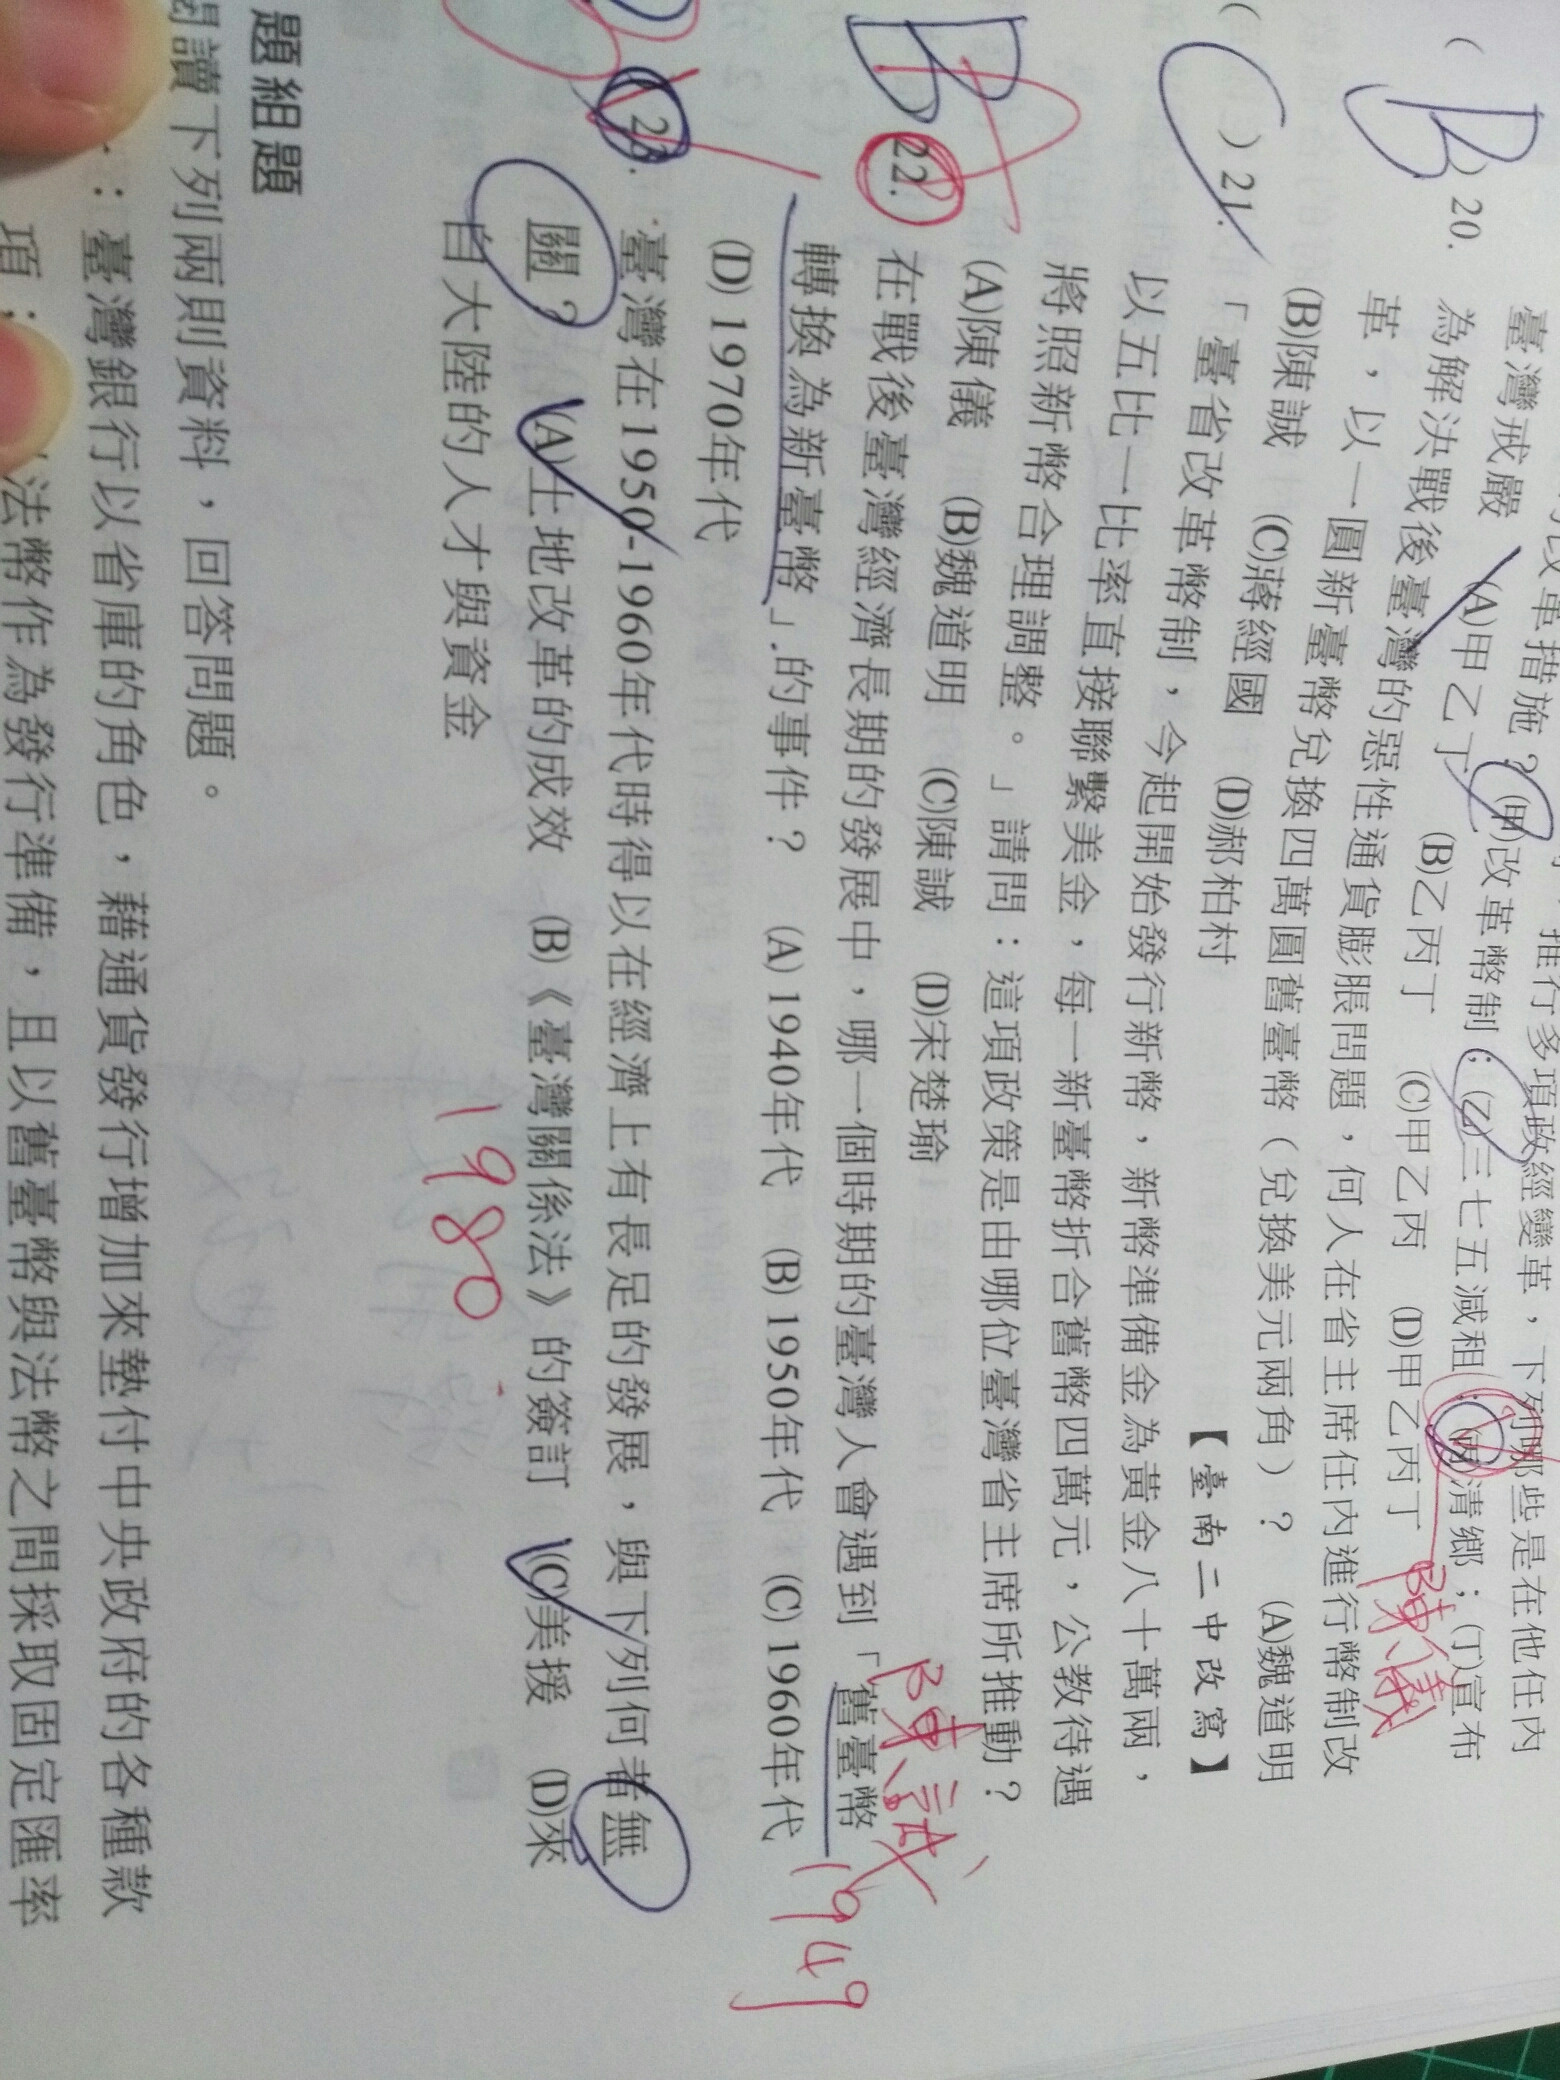 改革措施？(甲)改革幣制；(乙)三七五減租；(丙)清鄉；(丁)宣布
推行多項政經變革，下列哪些是在他任內
臺灣戒嚴 (A)甲乙丁 (B)乙丙丁 (C)甲乙丙 (D)甲乙丙丁
陳儀
( B )20. 為解決戰後臺灣的惡性通貨膨脹問題，何人在省主席任內進行幣制改
革，以一圓新臺幣兌換四萬圓舊臺幣（兌換美元兩角）？ (A)魏道明
(B)陳誠 (C)蔣經國 (D)郝柏村 【臺南二中改寫】
( C )21. 「臺省改革幣制，今起開始發行新幣，新幣準備金為黃金八十萬兩，
以五比一比率直接聯繫美金，每一新臺幣折合舊幣四萬元，公教待遇
將照新幣合理調整。」請問：這項政策是由哪位臺灣省主席所推動？
(A)陳儀 (B)魏道明 (C)陳誠 (D)宋楚瑜
陳誠
B A 22. 在戰後臺灣經濟長期的發展中，哪一個時期的臺灣人會遇到「舊臺幣
轉換為新臺幣」的事件？ (A) 1940年代 (B) 1950年代 (C) 1960年代
1949
(D) 1970年代
23. 臺灣在1950-1960年代時得以在經濟上有長足的發展，與下列何者無
關？ (A)土地改革的成效 (B)《臺灣關係法》的簽訂 (C)美援 (D)來
1980
自大陸的人才與資金
題組題
閱讀下列兩則資料，回答問題。
：臺灣銀行以省庫的角色，藉通貨發行增加來墊付中央政府的各種款
項；法幣作為發行準備，且以舊臺幣與法幣之間採取固定匯率